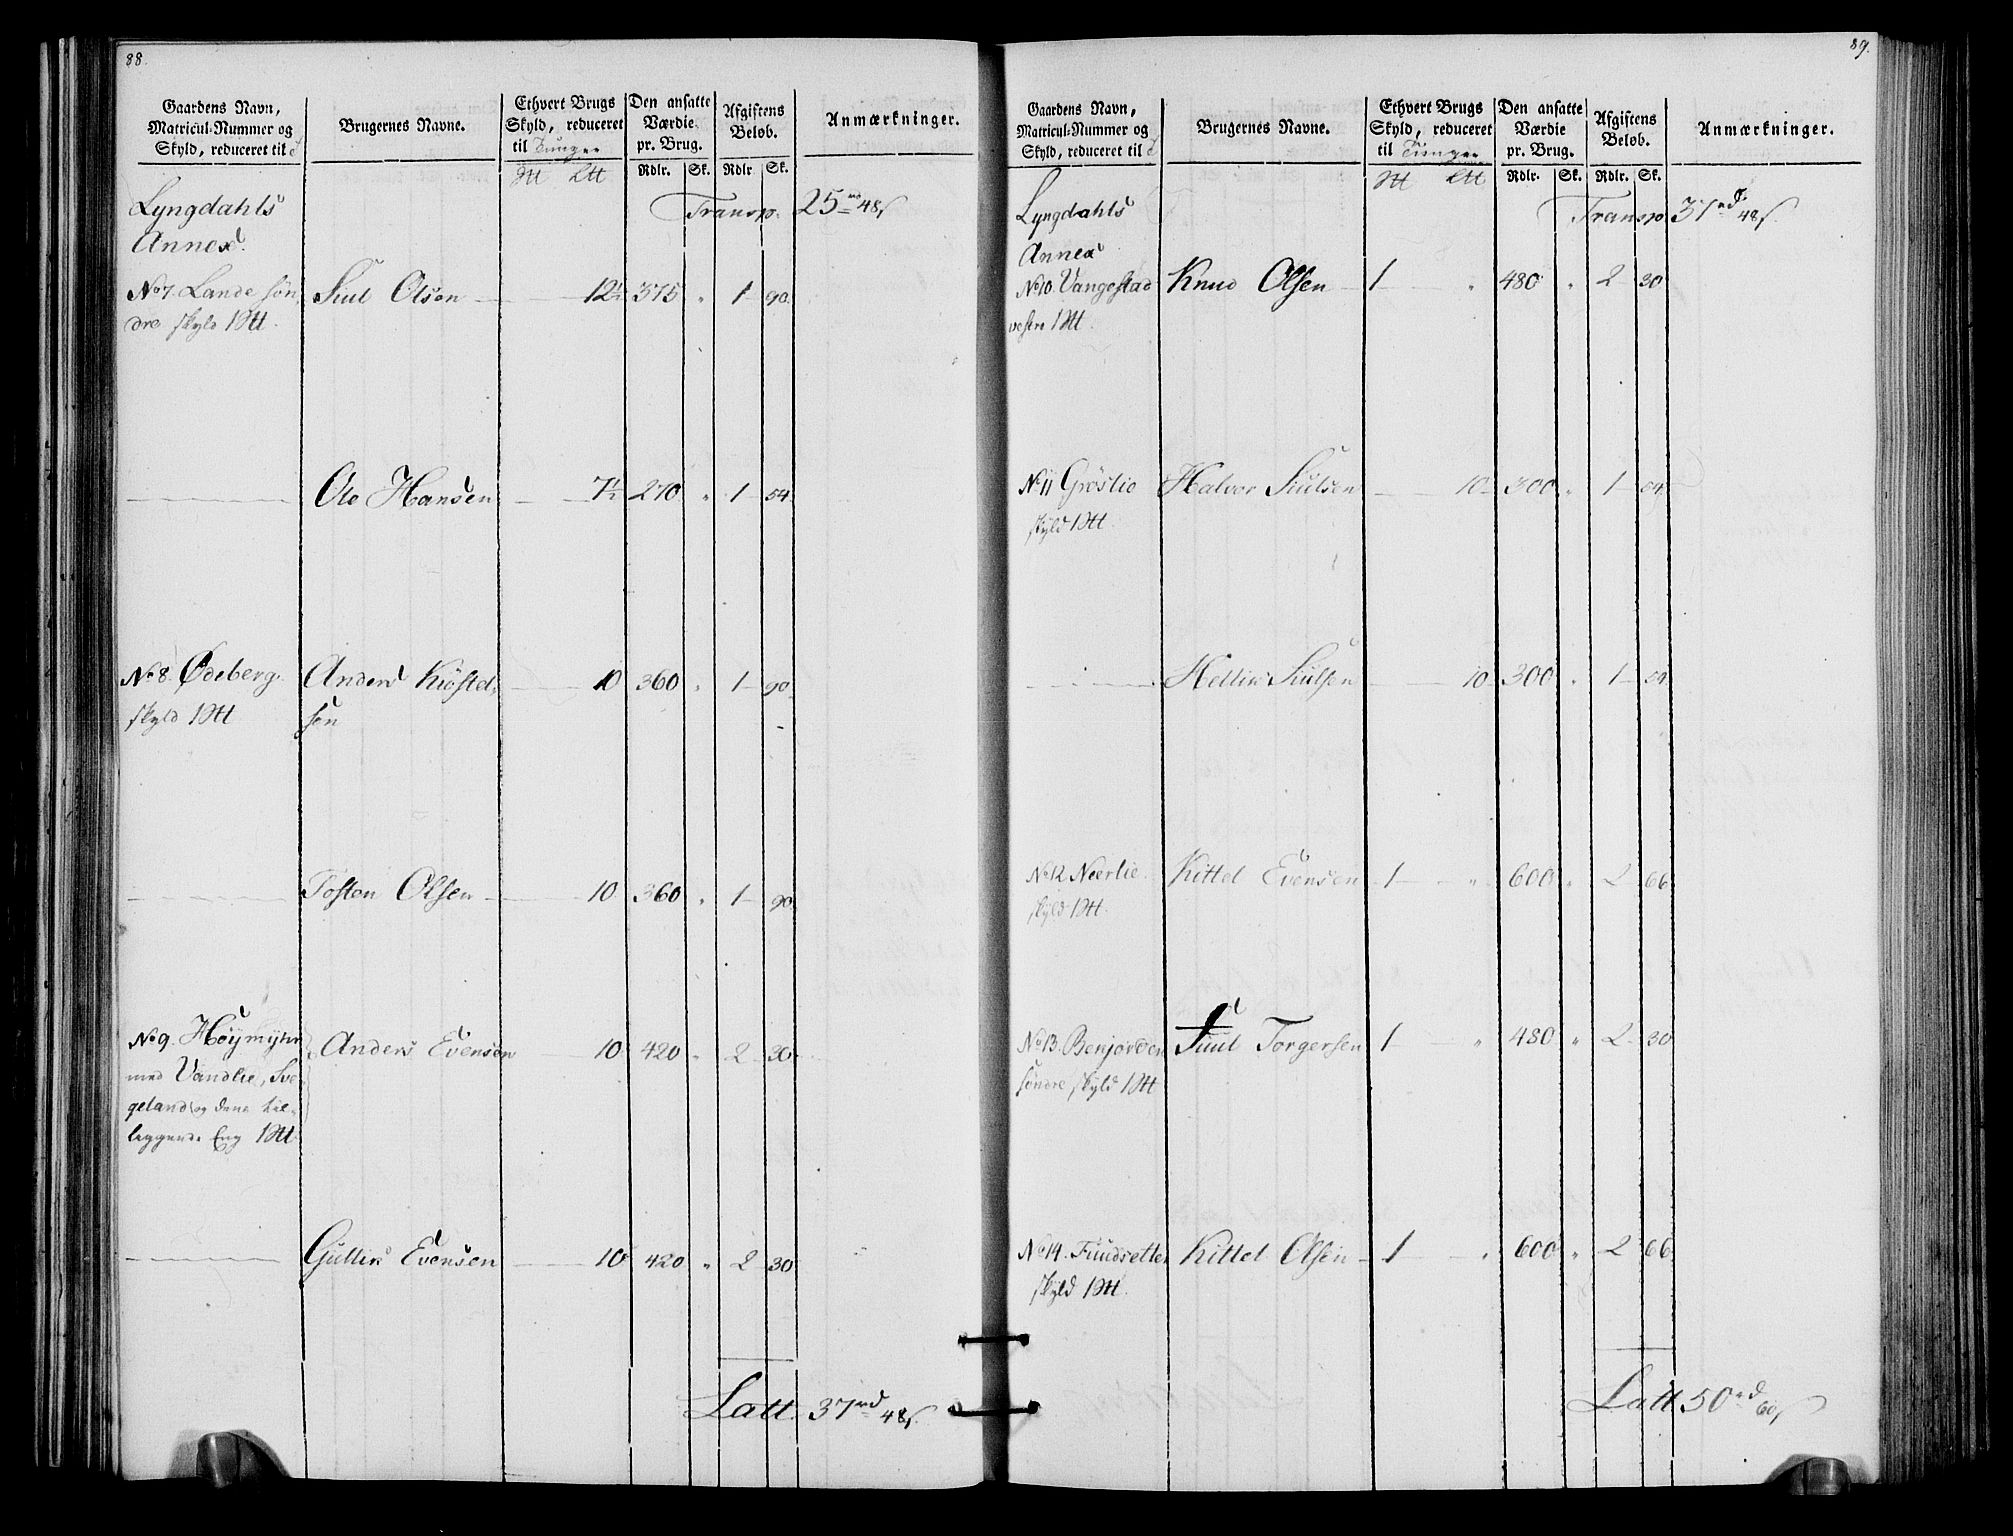 88.
Gaardens Navn, Matricul-Nummer og Skyld, reduceret til
Brugernes Navne.
Ethvert Brugs Skyld, reduceret til Tunger
Den ansatte Værdie pr. Brug.
Afgiftens Beløb.
Anmærkninger.
Rdlr. Sk. Rdlr Sk.
Lyngdahls Transp. 25 rd 48 s
Annex.
No 7. Lande søn Juul Olsen 12½ 375 " 1 90
dre skyld 1 Htt.
Ole Hansen 7½ 270 " 1 54
No 8. Ødeberg. Anders Kiöstel 10 360 " 1 90
skyld 1 Htt sen
Tosten Olsen 10 360 " 1 90
No 9. Höymyhr Anders Evensen 10 420 " 2 30
med Vandlie, Sve
geland og dens til
leggende Eng 1 Htt
Gullik Evensen 10 420 " 2 30
Latt. 37 rd 48 s
89.
Gaardens Navn, Matricul-Nummer og Skyld, reduceret til
Brugernes Navne.
Ethvert Brugs Skyld, reduceret til Tunger
Den ansatte Værdie pr. Brug.
Afgiftens Beløb.
Anmærkninger.
Rdlr. Sk. Rdlr. Sk.
Lyngdahls Transp 37 rd 48 s
Annex
No 10 Vangestad Knud Olsen 1 " 480 " 2 30
vestre 1 Htt.
No 11 Gröslie Halvor Juulsen 10 300 " 1 54
skyld 1 Htt.
Hellik Juulsen 10 300 " 1 54
No 12 Neerlie. Kittel Evensen 1 " 600 " 2 66
skyld 1 Htt.
No 13. Benjorden Juul Torgersen 1 " 480 " 2 30
söndre skyld 1 Htt
No 14. Fuudsetter Kittel Olsen 1 " 600 " 2 66
skyld 1 Htt.
Latt 50 rd 60 s